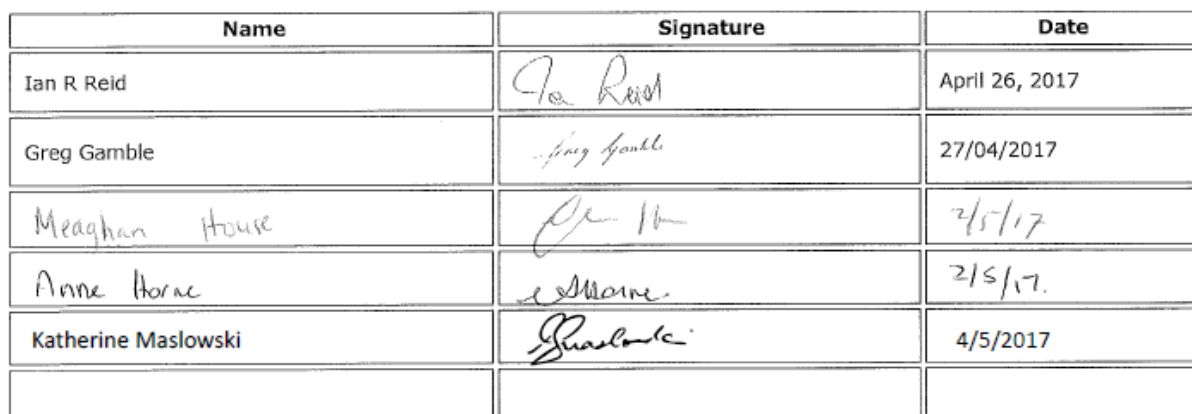 Name Signature Date
Ian R Reid Ian Reid April 26, 2017
Greg Gamble Greg Gamble 27/04/2017
Meaghan House 2/5/17
Anne Horne AHorne 2/5/17.
Katherine Maslowski 4/5/2017